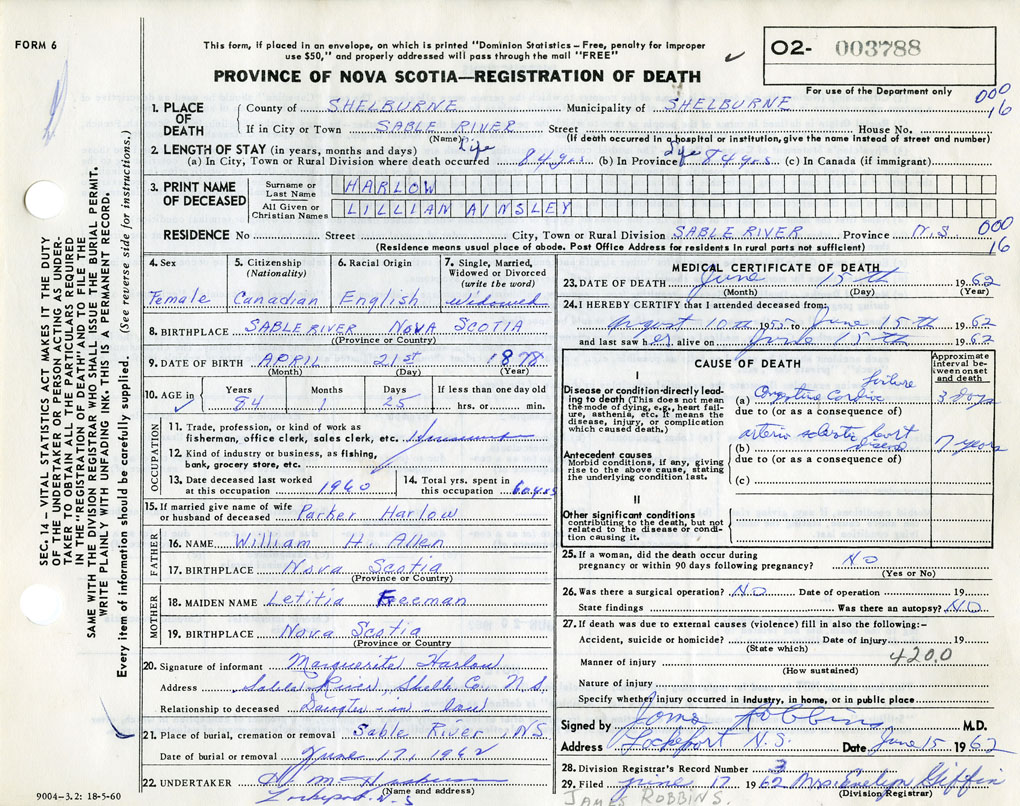 FORM 6
This form, if placed in an envelope, on which is printed "Dominion Statistics – Free, penalty for improper
use $50," and properly addressed will pass through the mail "FREE"
02- 003788
PROVINCE OF NOVA SCOTIA—REGISTRATION OF DEATH
For use of the Department only
000
16
1. PLACE OF DEATH
County of SHELBURNE Municipality of SHELBURNE
If in City or Town SABLE RIVER Street House No.
(Name) (If death occurred in a hospital or institution, give the name instead of street and number)
2. LENGTH OF STAY (in years, months and days)
Life Life
(a) In City, Town or Rural Division where death occured 84 yrs. (b) In Province 84 yrs (c) In Canada (if immigrant)
3. PRINT NAME OF DECEASED
Surname or Last Name HARLOW
All Given or Christian Names LILLIAN AINSLEY
000
16
RESIDENCE No Street City, Town or Rural Division SABLE RIVER Province N.S
(Residence means usual place of abode. Post Office Address for residents in rural parts not sufficient)
4. Sex
Female
5. Citizenship (Nationality)
Canadian
6. Racial Origin
English
7. Single, Married, Widowed or Divorced (write the word)
Widowed
8. BIRTHPLACE SABLE RIVER NOVA SCOTIA
(Province or Country)
9. DATE OF BIRTH APRIL 21st 1878
(Month) (Day) (Year)
10. AGE in Years Months Days If less than one day old
84 1 25 hrs. or min.
OCCUPATION
11. Trade, profession, or kind of work as
fisherman, office clerk, sales clerk, etc.
12. Kind of industry or business, as fishing,
bank, grocery store, etc.
13. Date deceased last worked at this occupation 1960
14. Total yrs. spent in this occupation 60 yrs
15. If married give name of wife or husband of deceased Parker Harlow
FATHER
16. NAME William H. Allen
17. BIRTHPLACE Nova Scotia
(Province or Country)
MOTHER
18. MAIDEN NAME Letitia Freeman
19. BIRTHPLACE Nova Scotia
(Province or Country)
20. Signature of informant Marguerite Harlow
Address Sable River, Shelb. Co. N.S.
Relationship to deceased Daughter-in-law
21. Place of burial, cremation or removal Sable River, NS
Date of burial or removal June 17, 1962
22. UNDERTAKER
(Name and address)
Lockeport N.S
9004-3.2: 18-5-60
MEDICAL CERTIFICATE OF DEATH
23. DATE OF DEATH June 15th 1962
(Month) (Day) (Year)
24. I HEREBY CERTIFY that I attended deceased from:
August 10th 1955 to June 15th 1962
and last saw her alive on June 15th 1962
CAUSE OF DEATH
Approximate interval between onset and death
I
Disease or condition directly leading to death (This does not mean the mode of dying, e.g., heart failure, asthenia, etc. It means the disease, injury, or complication which caused death.)
(a) Congestive Cardiac failure 3 days
due to (or as a consequence of)
Antecedent causes
Morbid conditions, if any, giving rise to the above cause, stating the underlying condition last.
(b) arterio sclerotic heart disease 7 years
due to (or as a consequence of)
(c)
II
Other significant conditions
contributing to the death, but not related to the disease or condition causing it.
25. If a woman, did the death occur during
pregnancy or within 90 days following pregnancy? NO
(Yes or No)
26. Was there a surgical operation? NO Date of operation 19
State findings Was there an autopsy? NO
27. If death was due to external causes (violence) fill in also the following:–
Accident, suicide or homicide? Date of injury 19
(State which) 420.0
Manner of injury
(How sustained)
Nature of injury
Specify whether injury occurred in industry, in home, or in public place
Signed by Robbins M.D.
Address Lockeport N.S. Date June 15 1962
28. Division Registrar's Record Number 3
29. Filed June 17 1962 Mrs. Evelyn Giffin
(Division Registrar)
JAMES ROBBINS.
SEC. 14 – VITAL STATISTICS ACT MAKES IT THE DUTY
OF THE UNDERTAKER OR PERSON ACTING AS UNDER-
TAKER TO OBTAIN ALL THE PARTICULARS REQUIRED
IN THE "REGISTRATION OF DEATH" AND TO FILE THE
SAME WITH THE DIVISION REGISTRAR WHO SHALL ISSUE THE BURIAL PERMIT.
WRITE PLAINLY WITH UNFADING INK. THIS IS A PERMANENT RECORD.
Every item of information should be carefully supplied. (See reverse side for instructions.)